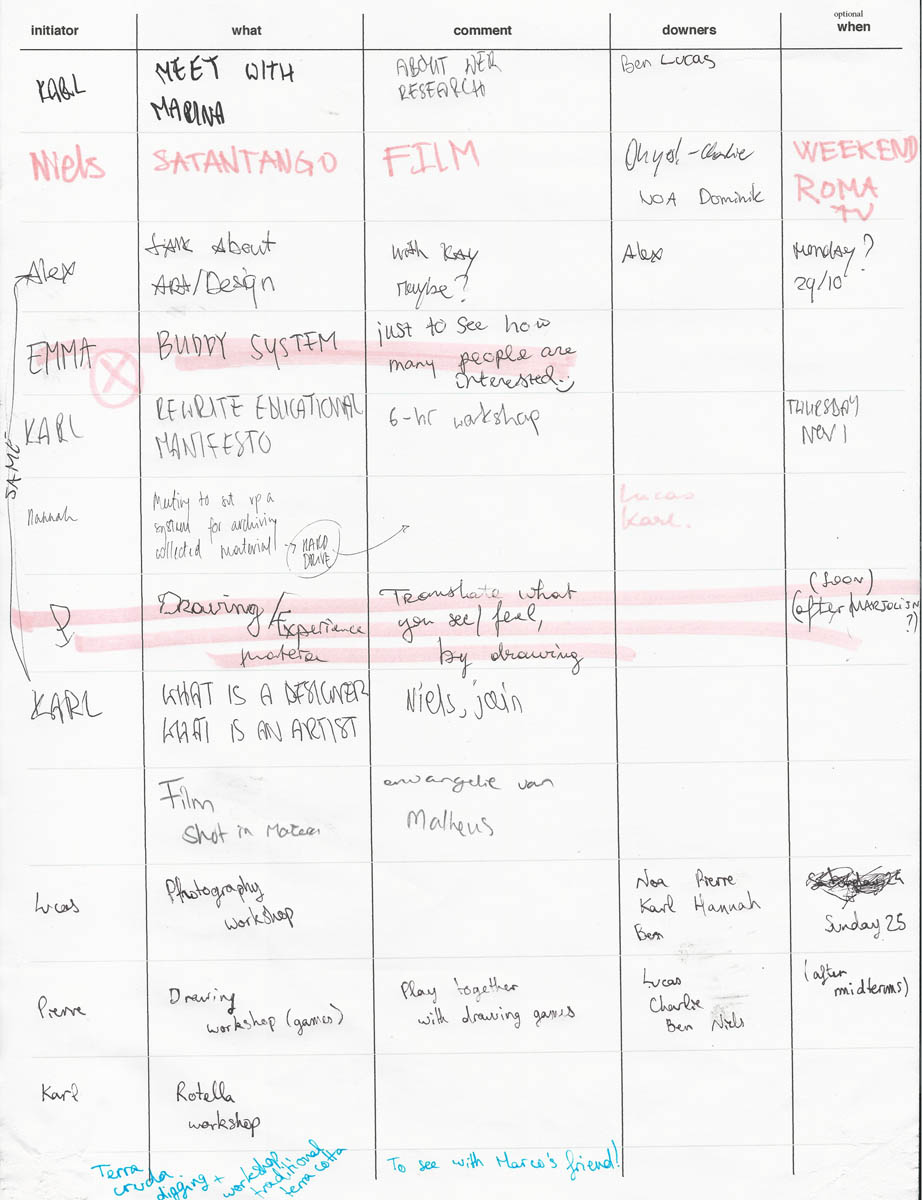 initiator what comment downers optional when
KARL
MEET WITH
MARINA
ABOUT HER
RESEARCH
Ben Lucas
Niels
SATANTANGO
FILM
Charlie
NOA Dominik
WEEKEND
ROMA
TV
Alex
talk About
ART/Design
with KAY
Maybe?
Alex
Monday?
29/10
EMMA
BUDDY SYSTEM
just to see how
many people are
interested :)
KARL
REWRITE EDUCATIONAL
MANIFESTO
6-hr workshop
THURSDAY
NOV 1
SAME
Hannah
Meeting to set up a
system for archiving
collected material →
HARD
DRIVE
Lucas
Karl.
Drawing/
Experience
matera
Translate what
you see/feel,
by drawing
(soon)
(after MARJOLIJN
?)
KARL
WHAT IS A DESIGNER
WHAT IS AN ARTIST
Niels, join
Film
shot in Matera
envangelie van
Matheus
Lucas
Photography
workshop
Noa Pierre
Karl Hannah
Ben
Sunday 25
Pierre
Drawing
workshop (games)
Play together
with drawing games
Lucas
Charlie
Ben Niels
(after
midterms)
Karl
Rotella
workshop
Terra
cruda
digging +
workshop
traditional
terra cotta
To see with Marco's friend!